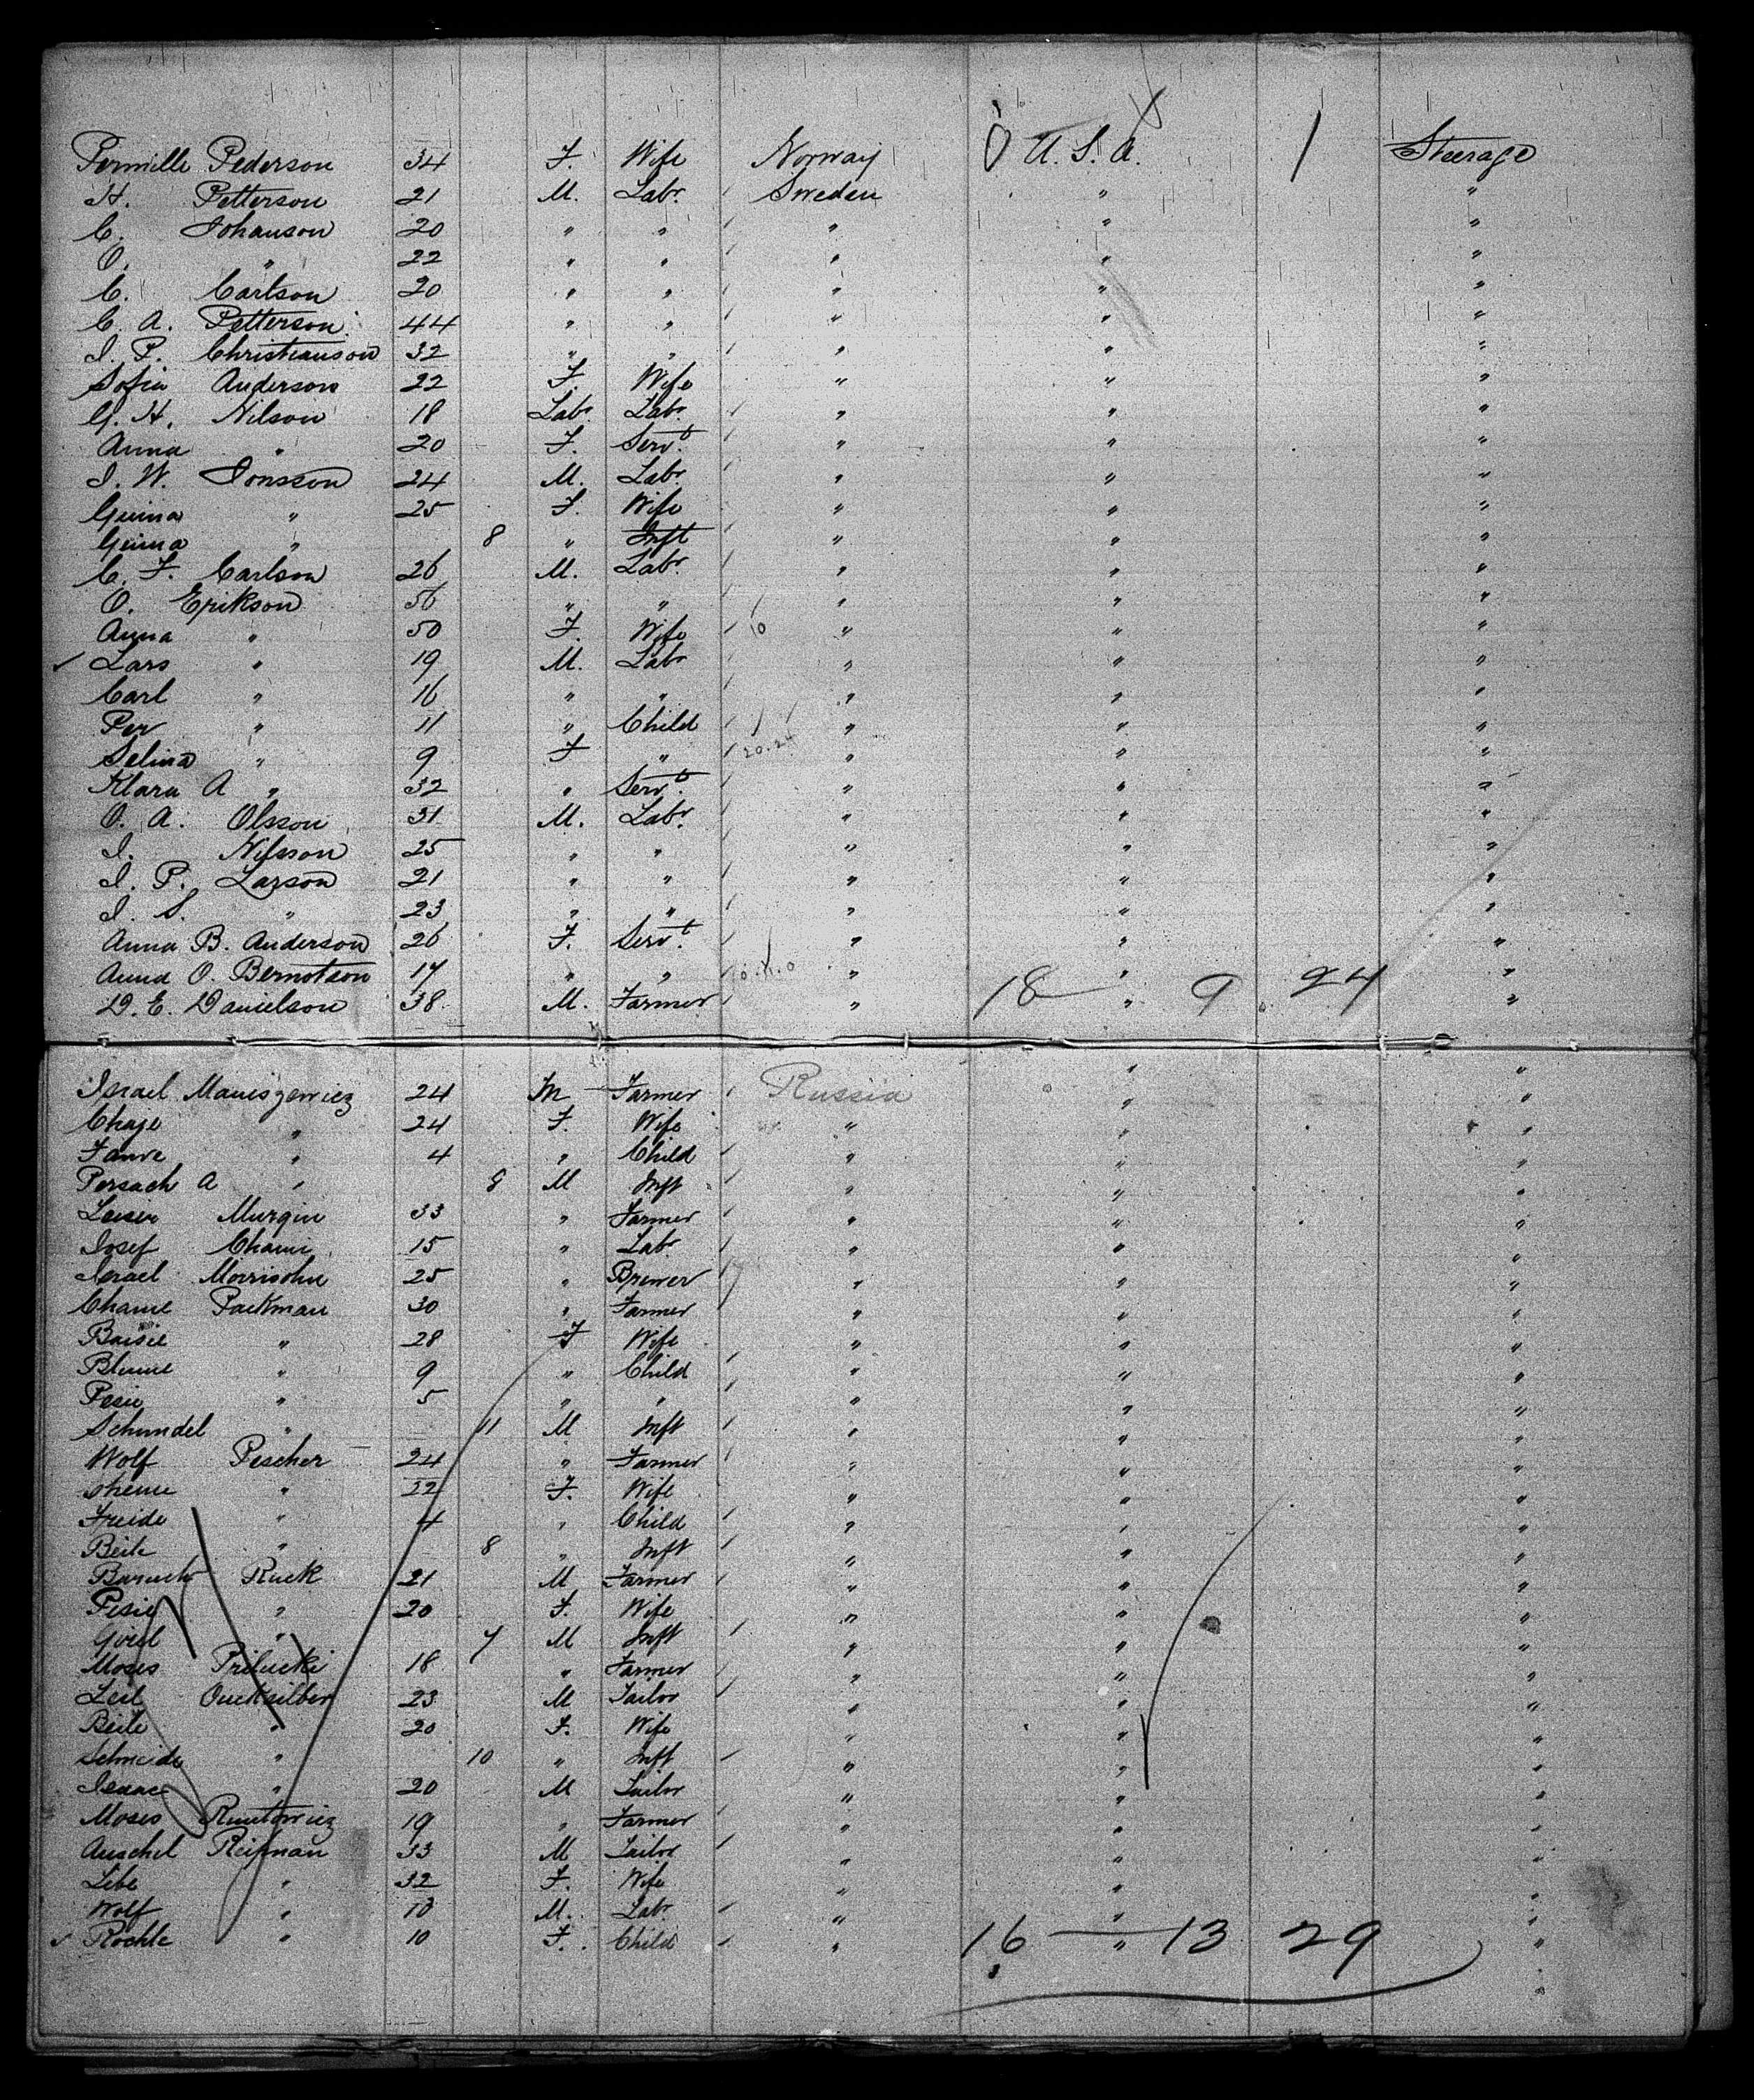 Pernille Pederson 34 F. Wife Norway U.S.A. 1 Steerage
H. Petterson 21 M. Labr. Sweden " "
C. Johanson 20 " " " " "
O. " 22 " " " " "
C. Carlson 20 " " " " "
C. A. Petterson 44 " " " " "
I. P. Christianson 32 " " " " "
Sofia Anderson 22 F. Wife " " "
G. H. Nilson 18 Labr Labr. " " "
Anna " 20 F. Servt. " " "
I. W. Jonsson 24 M. Labr. " " "
" 25 F. Wife " " "
" 8 " Inft " " "
C. F. Carlson 26 M. Labr. " " "
O. Erikson 56 " " " " "
Anna " 50 F. Wife 10 " " "
✓ Lars " 19 M. Labr " " "
Carl " 16 " " " " "
Per " 11 " Child " " "
Selina " 9 F " 20.24 " " "
Klara A " 32 " Servt. " " "
O. A. Olsson 31 M. Labr. " " "
I. Nilsson 25 " " " " "
I. P. Larson 21 " " " " "
I. S. " 23 " " " " "
Anna B. Anderson 26 F. Servt. " " "
Anna O. Berntson 17 " " " " "
D. E. Danielson 38 M. Farmer " 18 — " 9 24 "
Israel 24 M Farmer Russia " "
Chaje " 24 F. Wife " " "
" 4 " Child " " "
Persach A " 8 M Inft " " "
Leiser Murgin 33 " Farmer " " "
Josef Chaim 15 " Labr " " "
Israel Morrisohn 25 " Brewer " " "
Chaine Packman 30 " Farmer " " "
" 28 F Wife " " "
Blume " 9 " Child " " "
Pesie " 5 " " " " "
Schmdel " 11 M Inft " " "
Wolf Pescher 24 " Farmer " " "
" 22 F. Wife " " "
Freide " 4 " Child " " "
Beile " 8 " Inft " " "
Baruch Ruck 21 M Farmer " " "
Pesie " 20 F. Wife " " "
" 7 M Inft " " "
Moses Prilucki 18 " Farmer " " "
Leil Quecksilber 23 M Tailor " " "
Beile " 20 F. Wife " " "
Schneide " 10 " Inft " " "
Isaac " 20 M Tailor " " "
Moses 19 " Farmer " " "
Anschel Reifman 33 M Tailor " " "
Libe " 32 F. Wife " " "
Wolf " M. Labr " " "
✓ Rochle " 10 F. Child " 16 — " 13 29 "